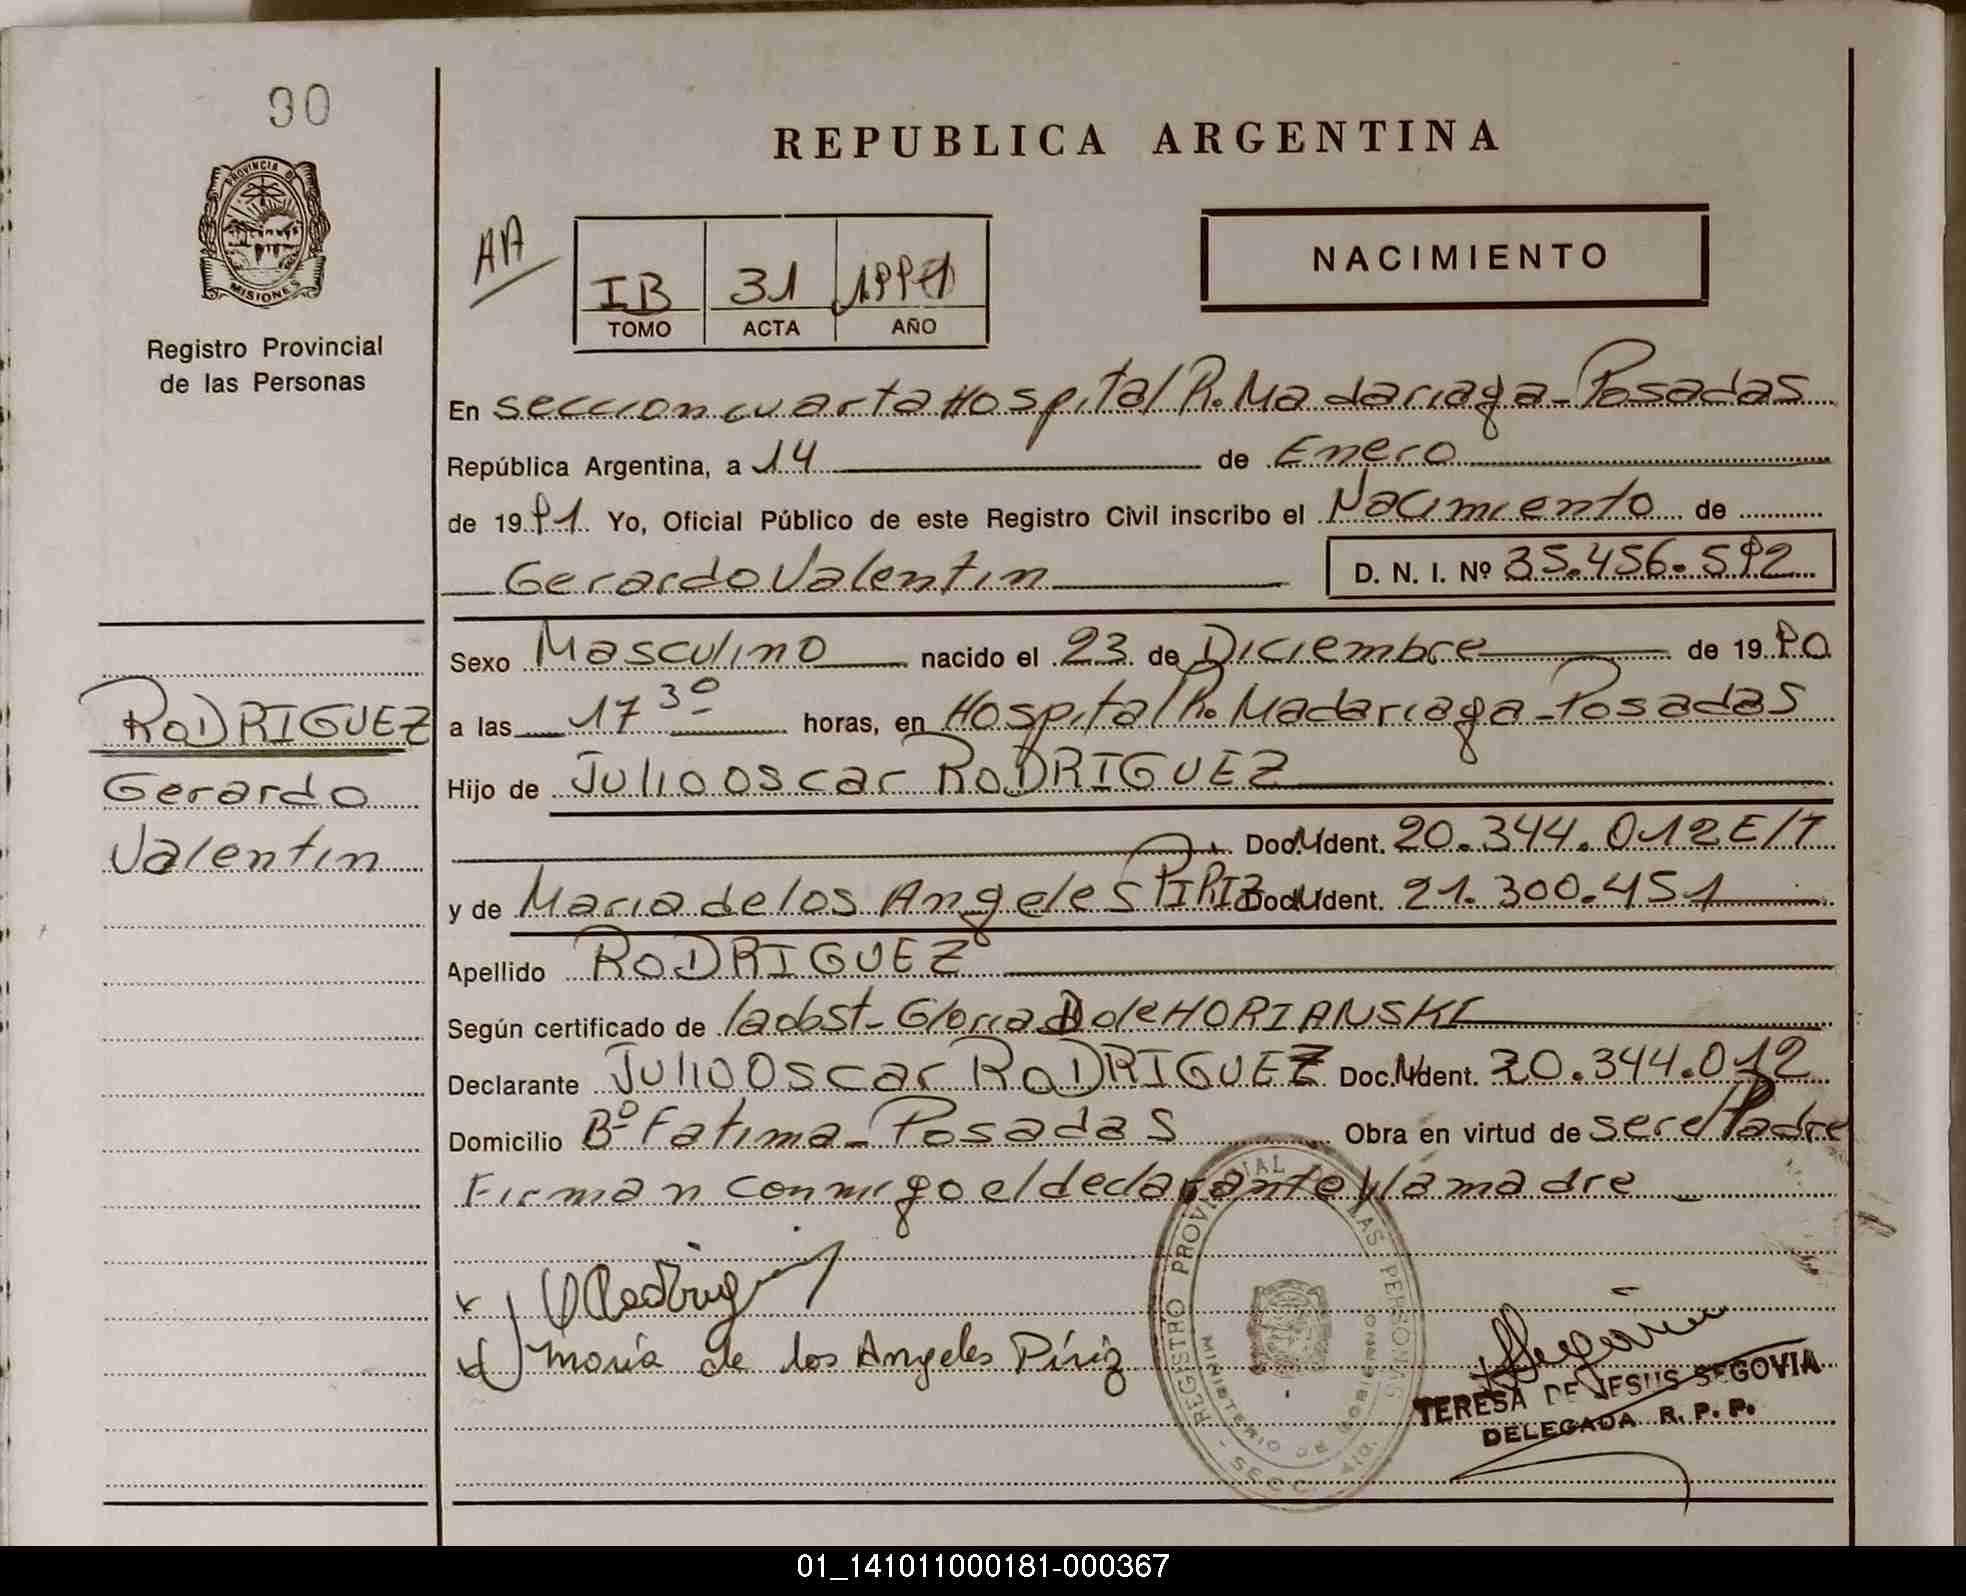 90
PROVINCIA DE
MISIONES
Registro Provincial
de las Personas
RODRIGUEZ
Gerardo
Valentin
REPUBLICA ARGENTINA
AA
IB 31 1991
TOMO ACTA AÑO
NACIMIENTO
En seccion cuarta Hospital R. Madariaga - Posadas
República Argentina, a 14 de Enero
de 19 91 Yo, Oficial Público de este Registro Civil inscribo el Nacimiento de
Gerardo Valentin D. N. I. Nº 35.456.592
Sexo Masculino nacido el 23 de Diciembre de 19 90
a las 17 30 horas, en Hospital R. Madariaga - Posadas
Hijo de Julio Oscar RODRIGUEZ
Doc. Ident. 20.344.012 E/T
y de Maria de los Angeles PIRIZ Doc. Ident. 21.300.451
Apellido RODRIGUEZ
Según certificado de la obst. Gloria D de HORIANSKI
Declarante Julio Oscar RODRIGUEZ Doc. Ident. 20.344.012
Domicilio Bº Fatima - Posadas Obra en virtud de ser el Padre
Firman conmigo el declarante y la madre
Maria de los Angeles Píriz
REGISTRO PROVINCIAL DE LAS PERSONAS
MINISTERIO DE GOBIERNO
SECC. 4ta.
TERESA DE JESUS SEGOVIA
DELEGADA R. P. P.
01_141011000181-000367